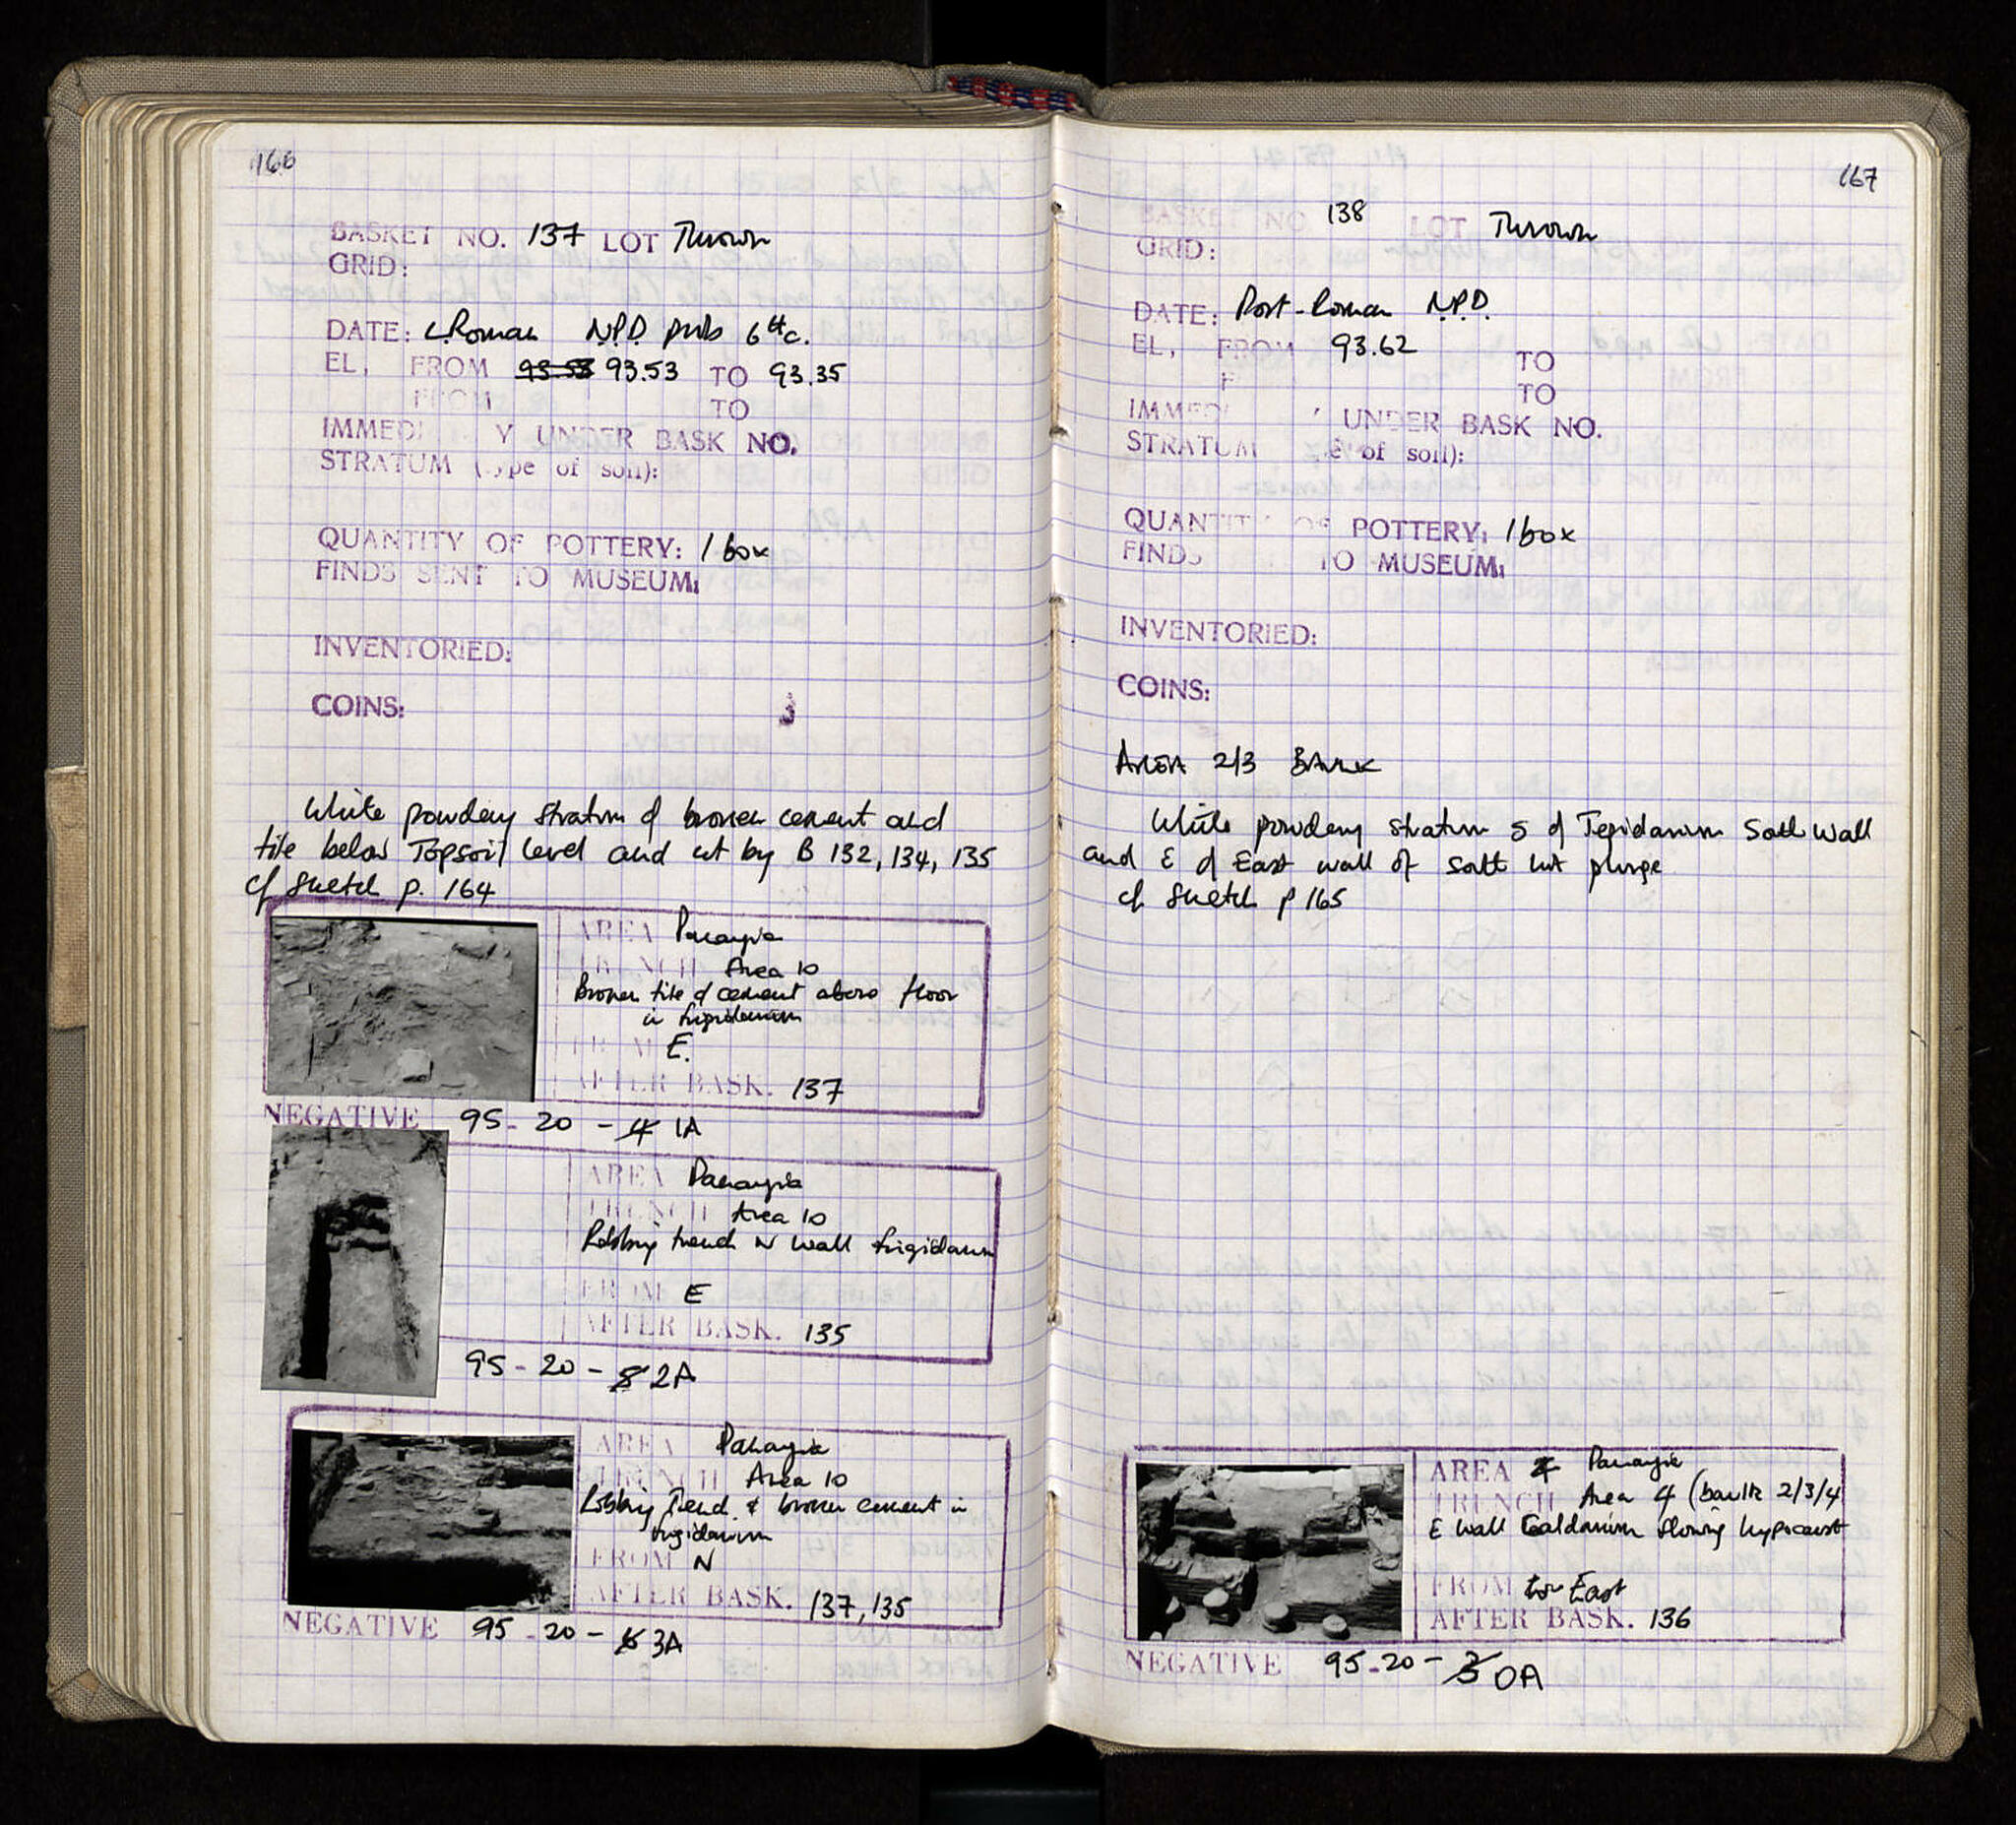 166
BASKET NO. 137 LOT Thrown
GRID:
DATE: LRoman N.P.D prob 6th c.
EL, FROM 93.53 93.53 TO 93.35
FROM TO
IMMEDI Y UNDER BASK NO.
STRATUM (type of soil):
QUANTITY OF POTTERY: 1 box
FINDS SENT TO MUSEUM:
INVENTORIED:
COINS:
White powdery stratum of broken cement and
tile below Topsoil level and cut by B 132, 134, 135
cf sketch p. 164
AREA Panayia
TRENCH Area 10
Broken tile & cement above floor
in frigidarium
FROM E.
AFTER BASK. 137
NEGATIVE 95-20-4 1A
AREA Panayia
TRENCH Area 10
Robbing trench N wall frigidarium
FROM E
AFTER BASK. 135
95-20-5 2A
AREA Panayia
TRENCH Area 10
Robbing Trench & broken cement in
frigidarium
FROM N
AFTER BASK. 137, 135
NEGATIVE 95-20-6 3A
167
BASKET NO 138 LOT Thrown
GRID:
DATE: Post-Roman N.P.D.
EL, FROM 93.62 TO
F TO
IMMEDI Y UNDER BASK NO.
STRATUM e of soil):
QUANTITY OF POTTERY: 1 box
FINDS TO MUSEUM:
INVENTORIED:
COINS:
AREA 2/3 BAULK
White powdery stratum S of Tepidarium South wall
and E of East wall of South hot plunge
cf sketch p 165
AREA Panayia
TRENCH Area 4 (baulk 2/3/4
E wall Caldarium showing hypocaust
FROM East
AFTER BASK. 136
NEGATIVE 95-20-3 0A